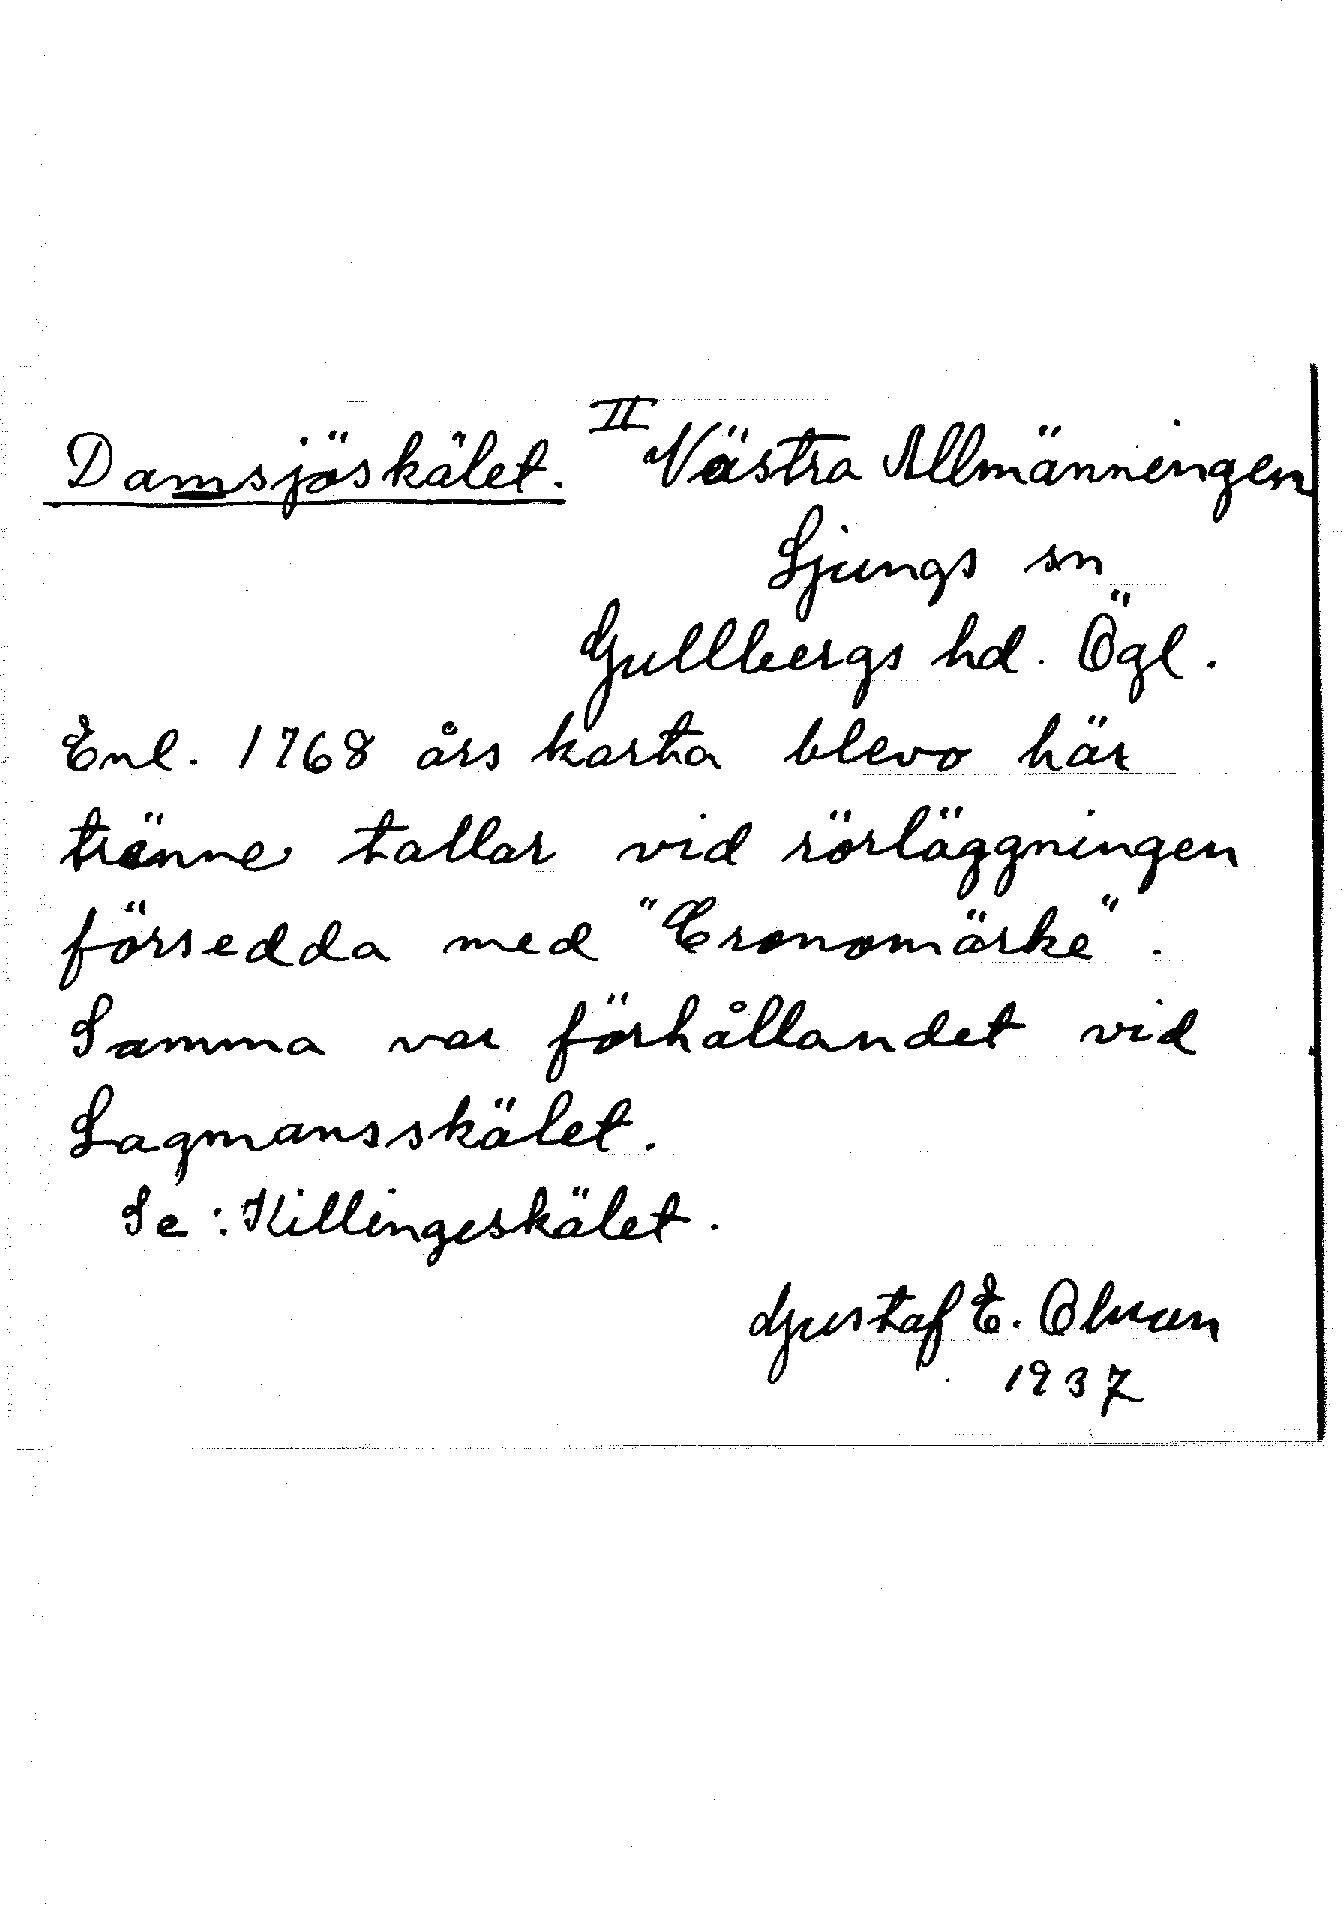 Damsjöskälet. II Västra Allmänningen
Ljungs sn
Gullbergs hd. Ögl.
Enl. 1768 års karta blevo här
tränne tallar vid rörläggningen
försedda med "Cronomärke".
Samma var förhållandet vid
Lagmansskälet.
Se: Killingeskälet.
Gustaf E. Olsson
1937